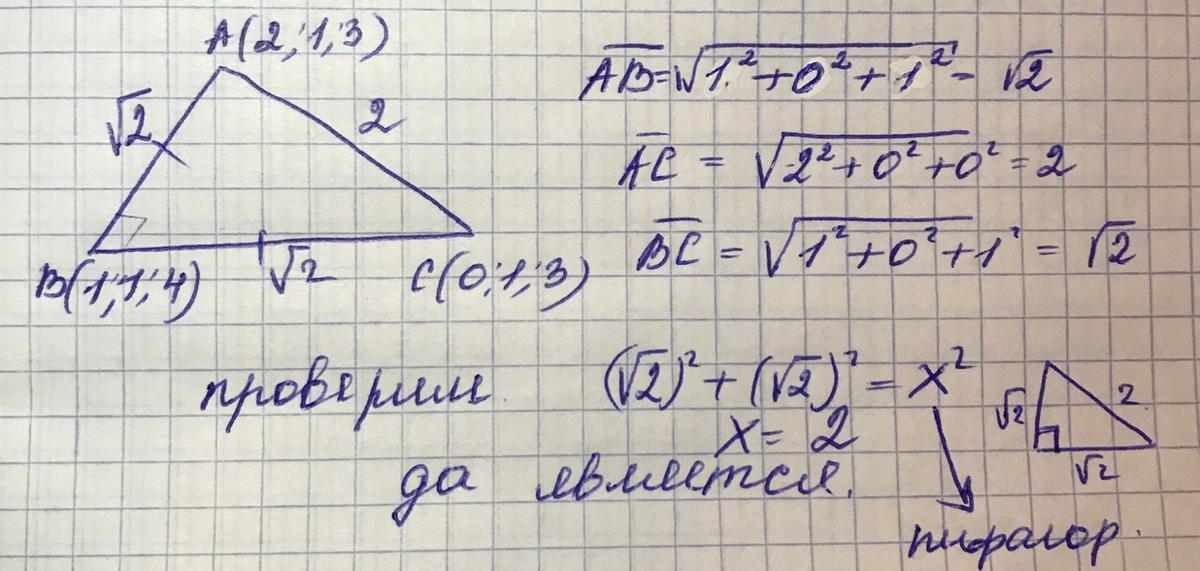 A(2;1;3)
√2
2
B(1;1;4)
√2
C(0;1;3)
AB=√1²+0²+1² - √2
AC = √2²+0²+0² = 2
BC = √1²+0²+1² = √2
проверим (√2)²+(√2)² = x²
x= 2
да является.
пифагор.
√2
2
√2